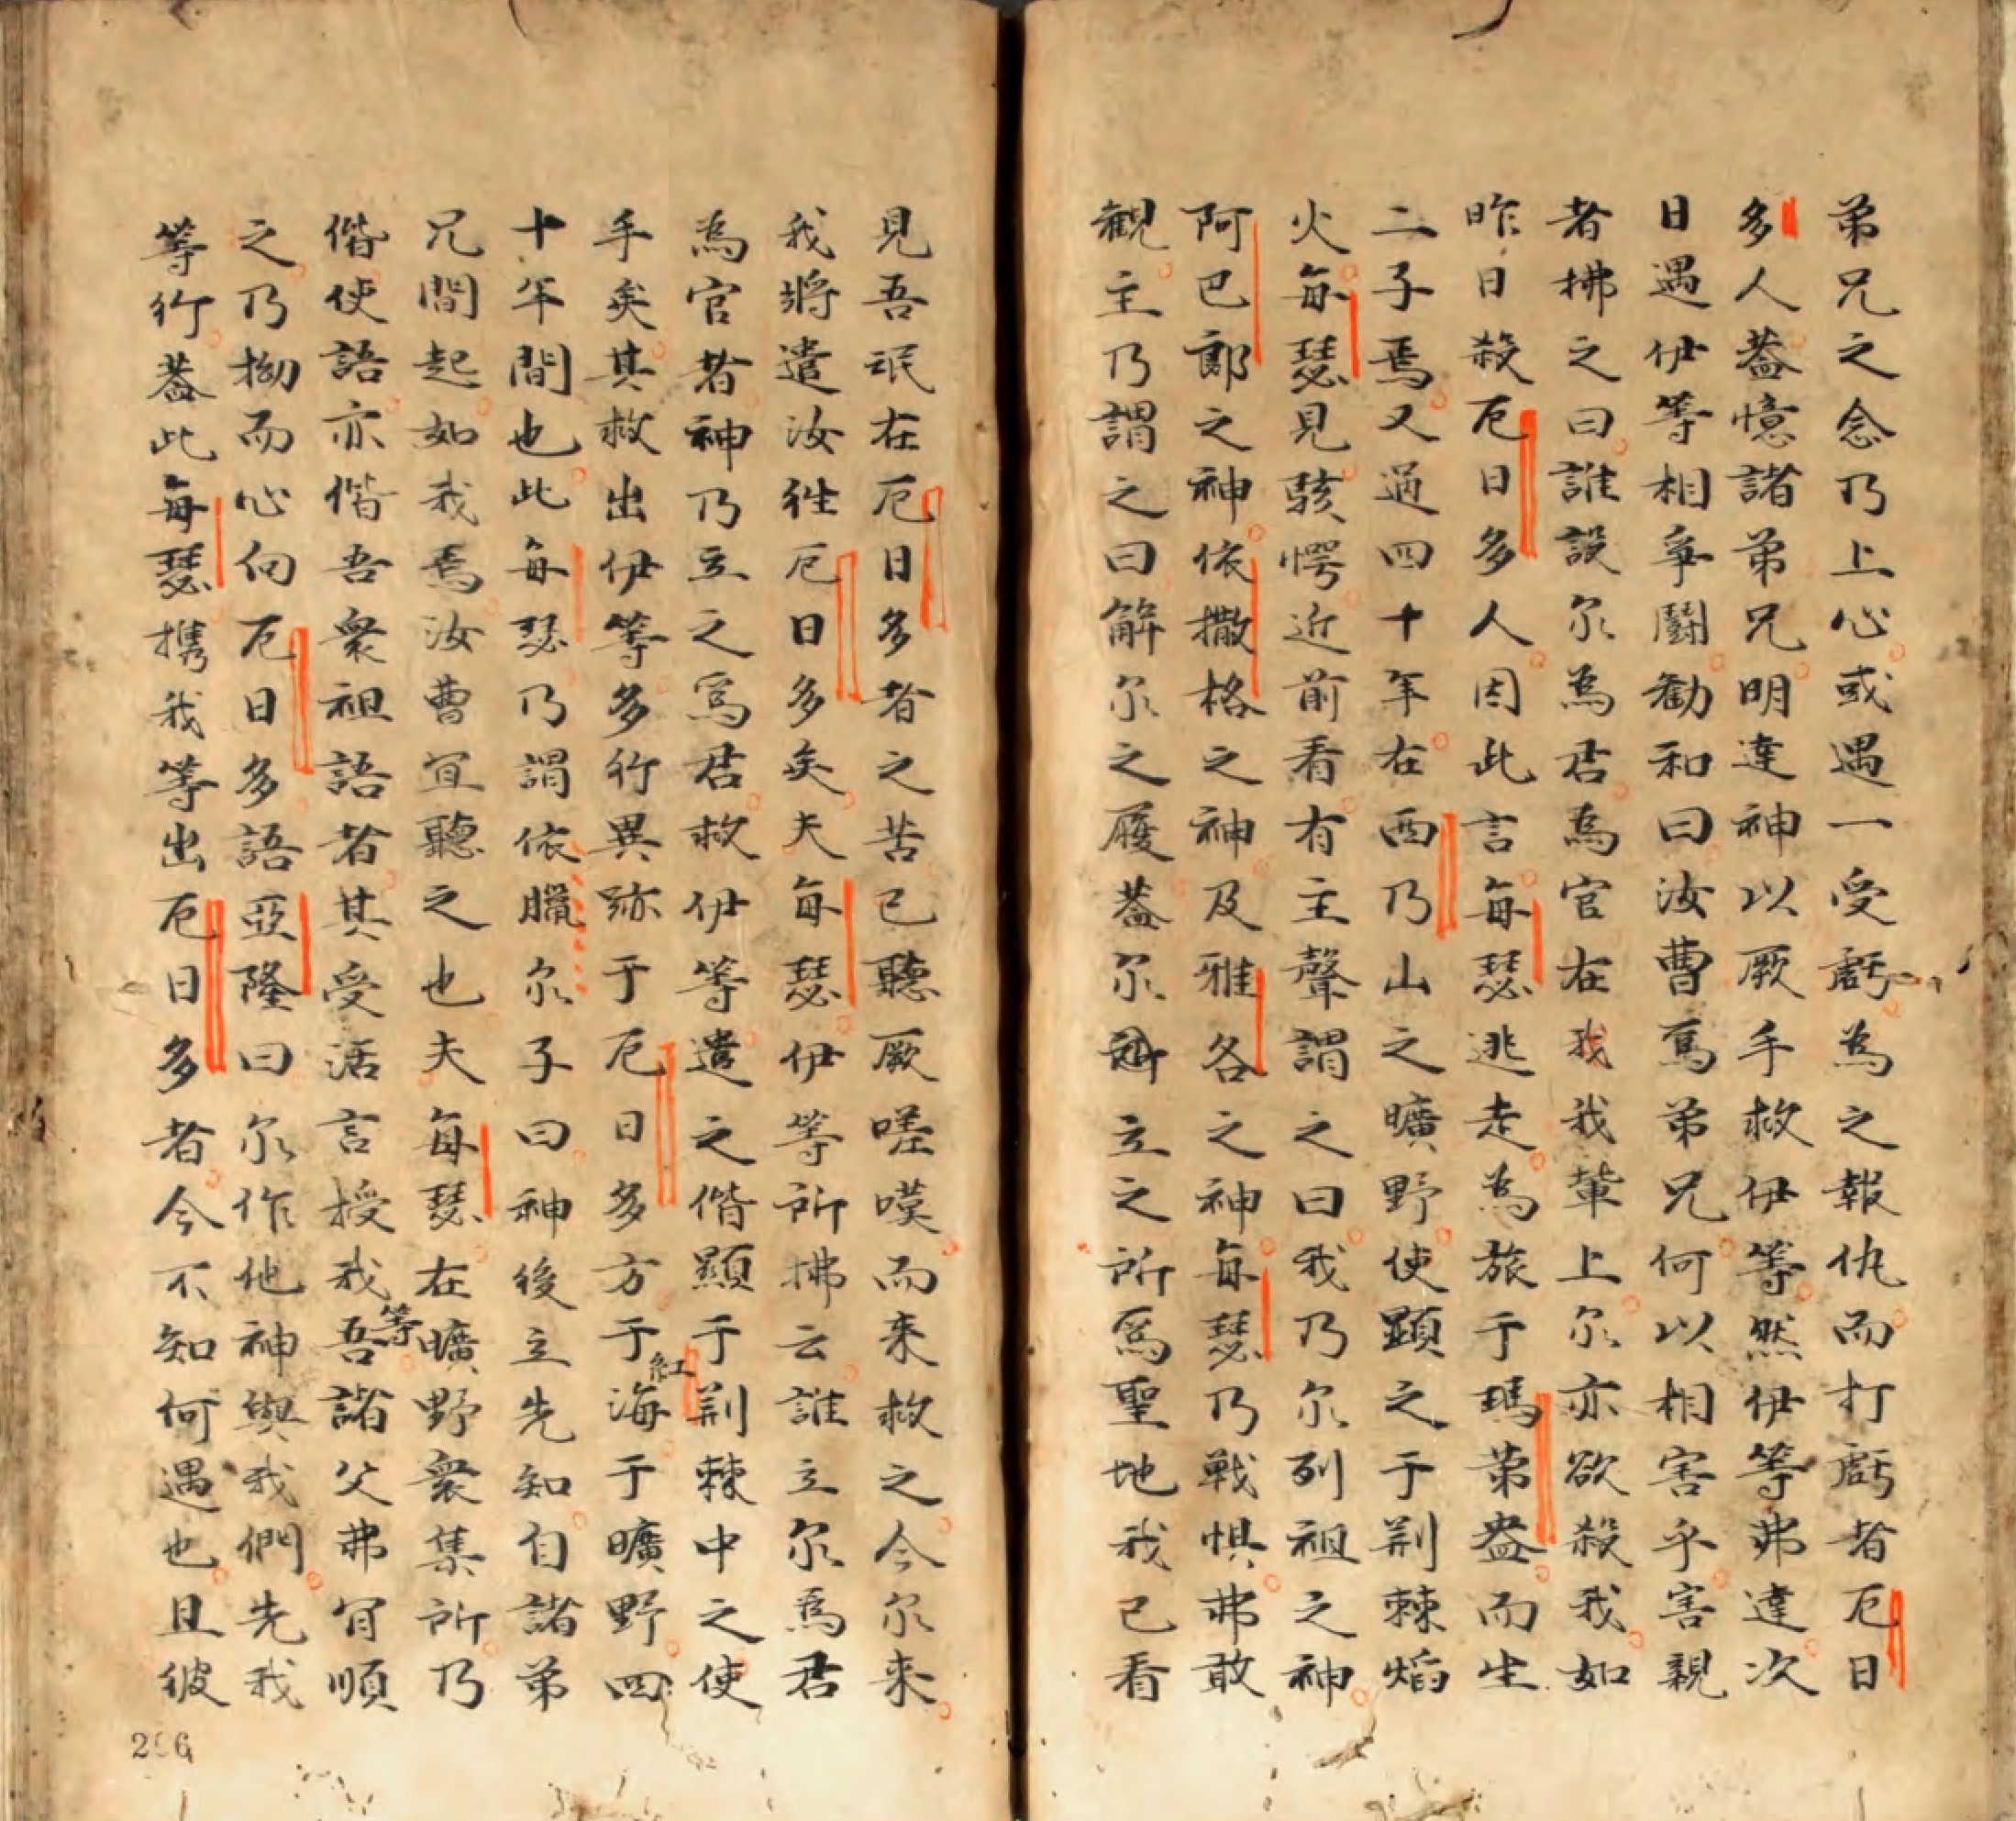 弟兄之念乃上心或遇一受虧為之報仇而打虧者厄日
多人葢憶諸弟兄明達神以厥手救伊等然伊等弗達次
日遇伊等相爭鬪勸和曰汝曹爲弟兄何以相害乎害親
者拂之曰誰設尔為君為官在我我輩上尔亦欲殺我如
昨日殺厄日多人因此言每瑟逃走為旅于瑪苐盎而生
二子焉又過四十年在西乃山之曠野使顕之于荆棘焰
火每瑟見駭愕近前看有主聲謂之曰我乃尔列祖之神
阿巴郎之神依撒格之神及雅各之神每瑟乃戰惧弗敢
觀主乃謂之曰解尔之履葢尔立之所爲聖地我已看
見吾氓在厄日多者之苦已聽厥嗟嘆而来救之今尔来
我將遣汝徃厄日多矣夫每瑟伊等所拂云誰立尔爲君
為官者神乃立之爲君救伊等遣之偕顯于荆棘中之使
手矣其救出伊等多行異跡于厄日多方于紅海于曠野四
十年間也此每瑟乃謂依臘尔子曰神後立先知自諸弟
兄間起如我焉汝曹宜聽之也夫每瑟在曠野衆集所乃
偕使語亦偕吾衆祖語者其受活言授我等吾諸父弗肯順
之乃拗而心向厄日多語亞隆曰尔作他神與我們先我
等行葢此每瑟携我等出厄日多者今不知何遇也且彼
206